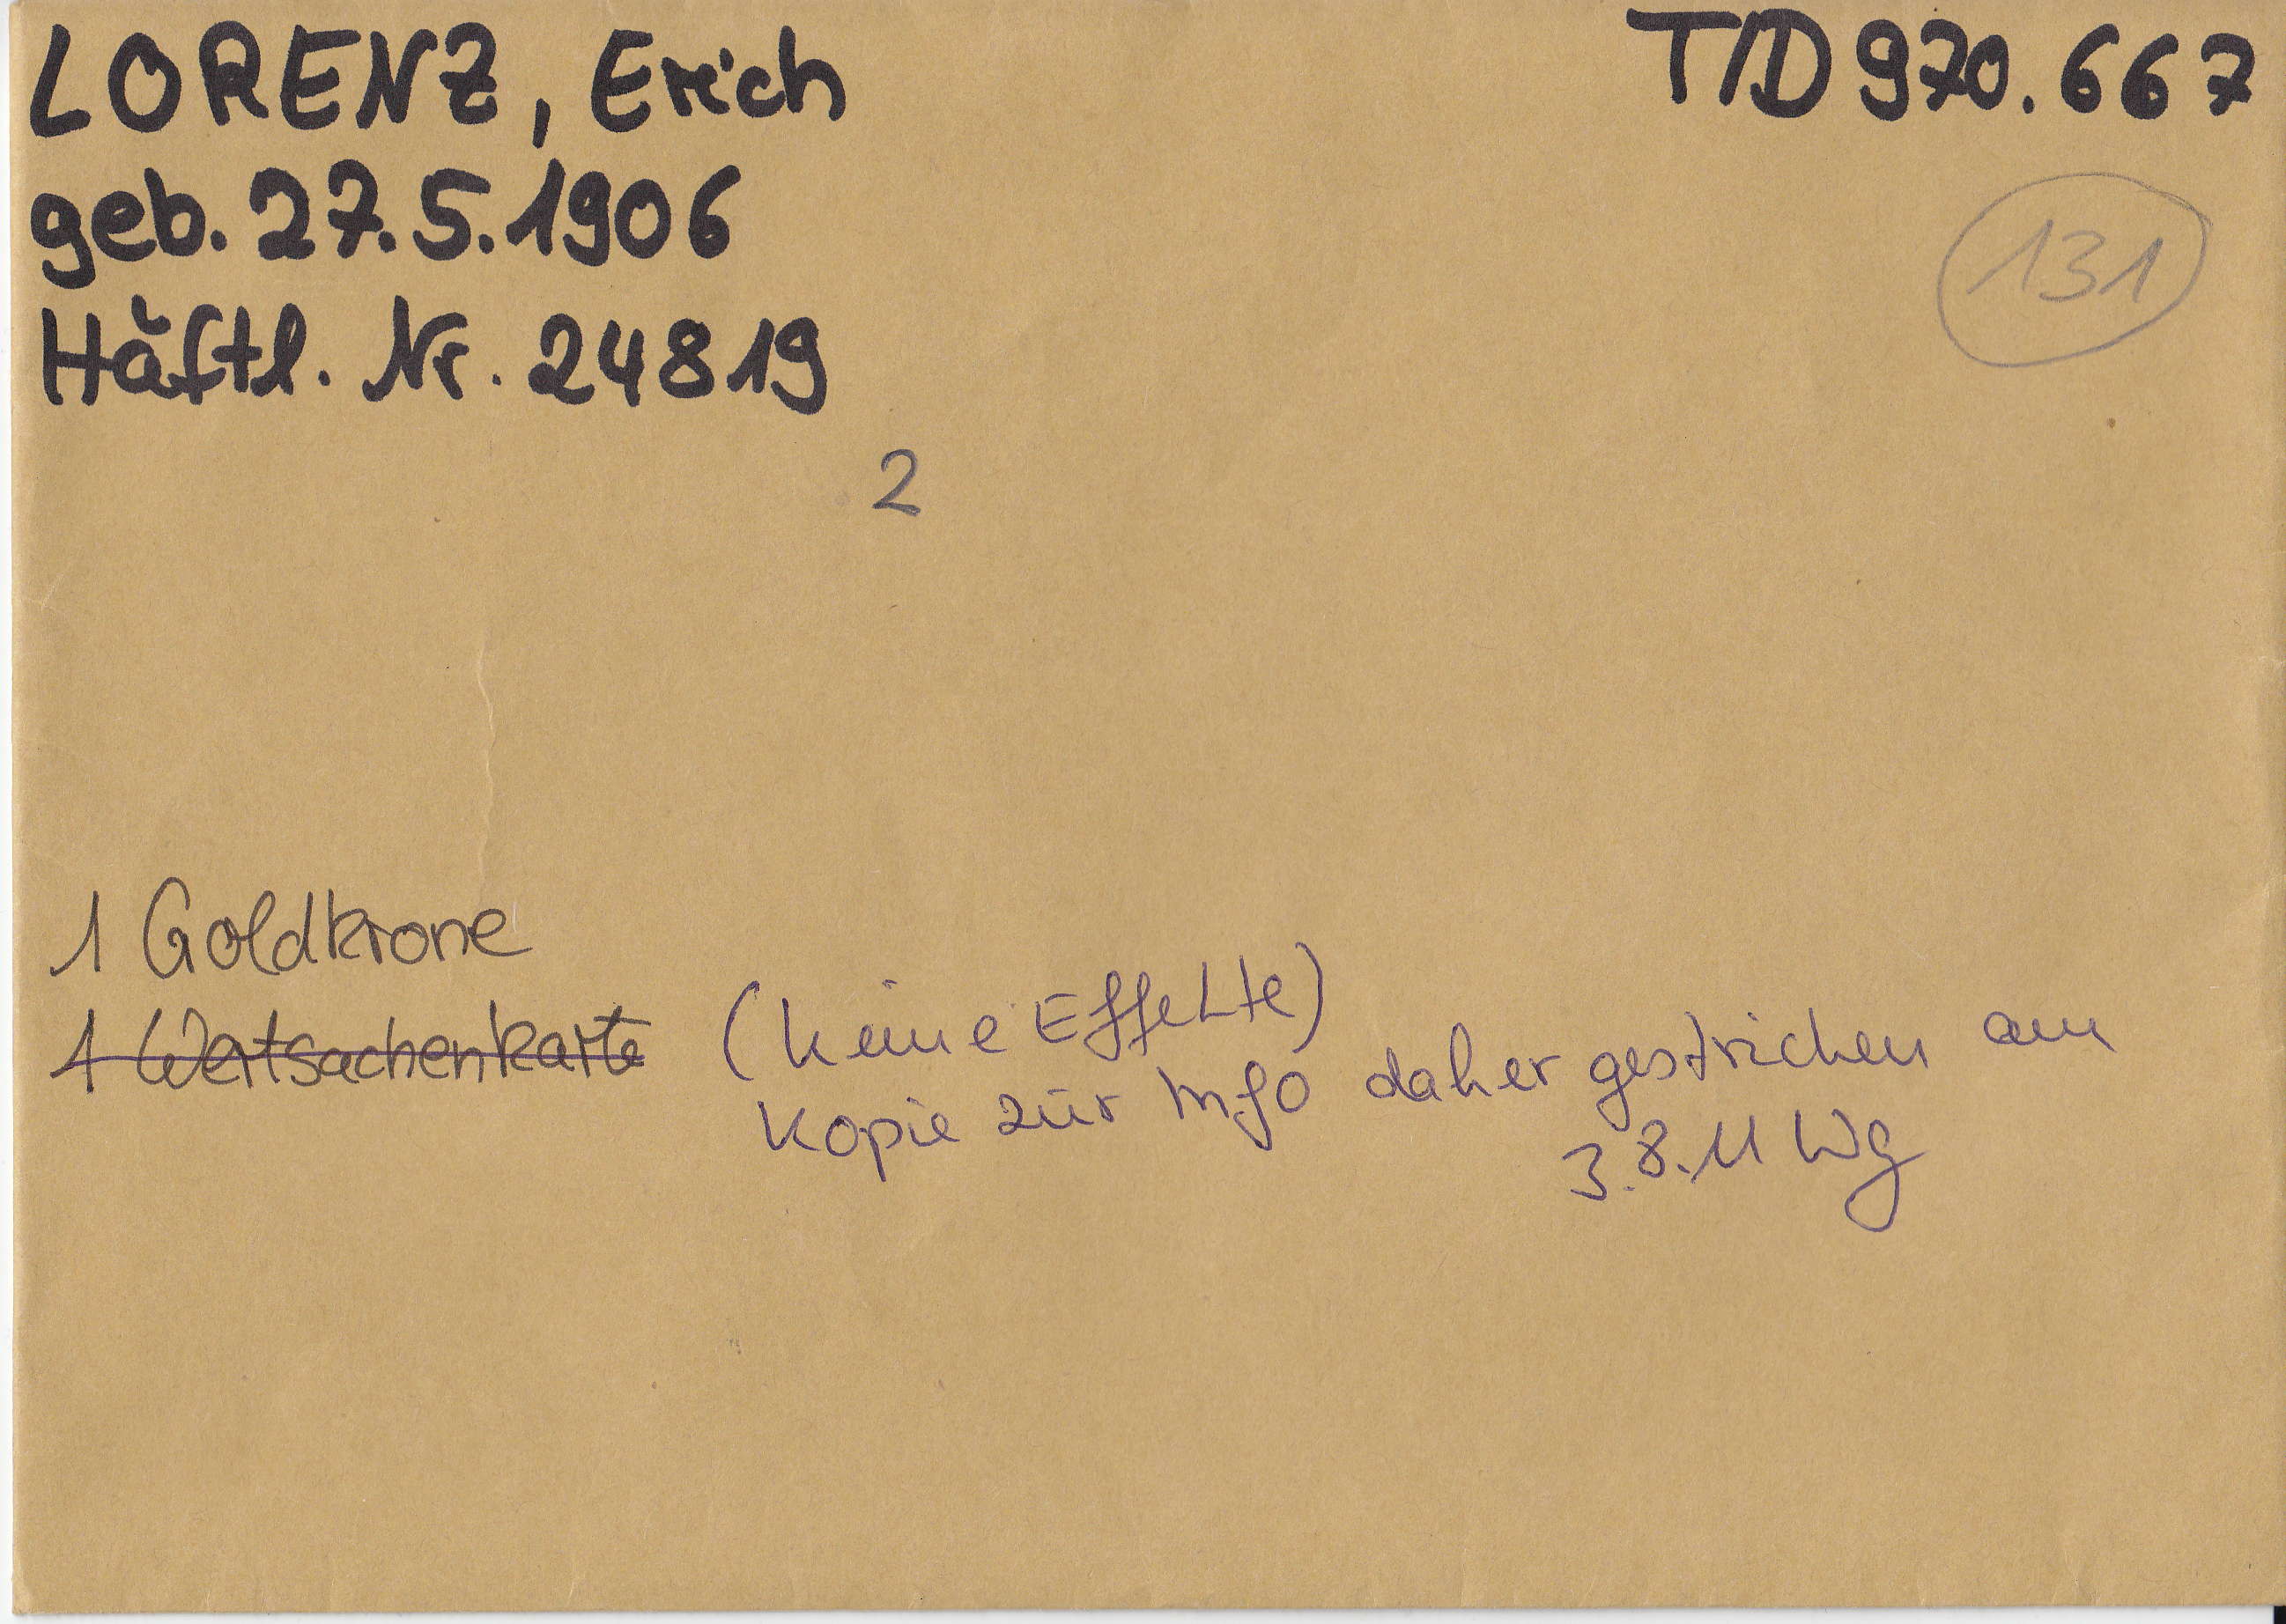 LORENZ, Erich
T/D 970.667
geb. 27.5.1906
131
Häftl. Nr. 24819
2
1 Goldkrone
1 Wertsachenkarte (keine Effekte)
Kopie zur Info daher gestrichen am
3.8.11 Wg